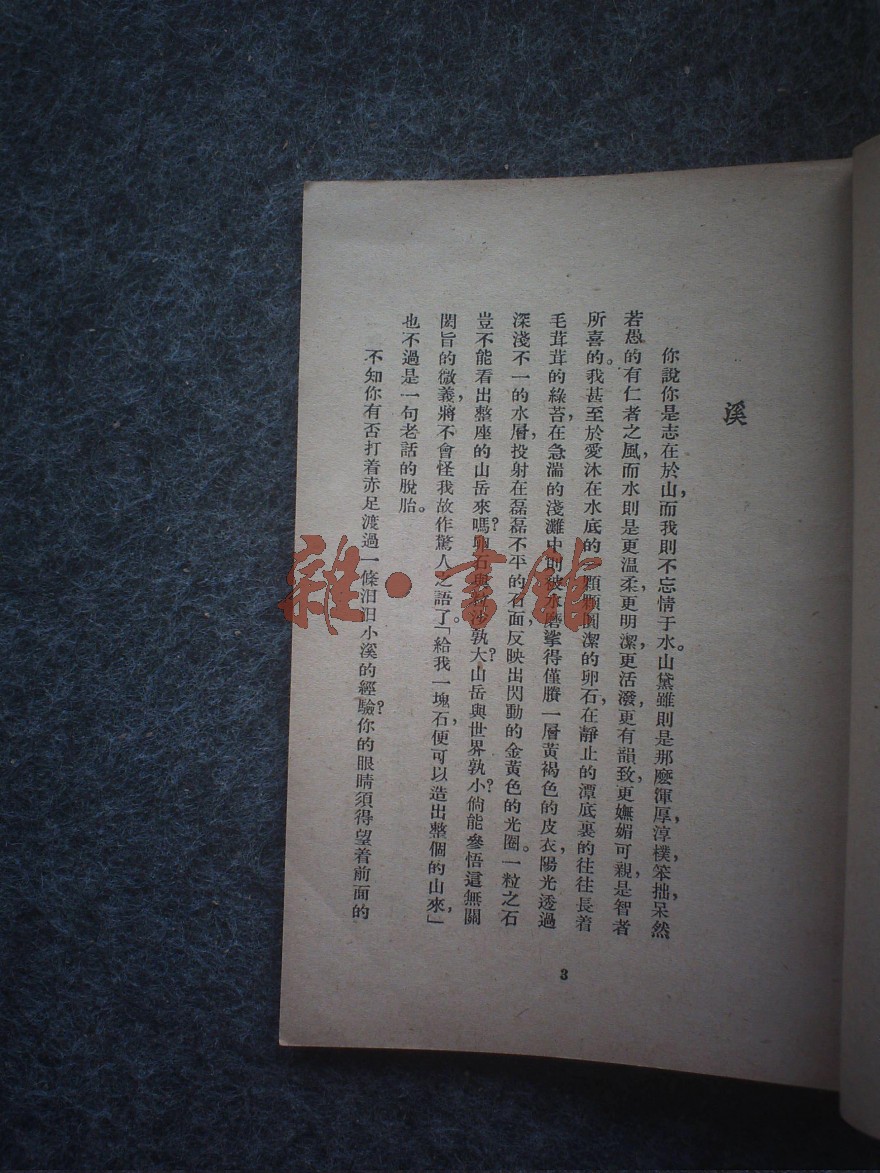 溪
你說你是志在於山，而我則不忘情于水。山黛雖則是那麽渾厚，淳樸，笨拙，呆然
若愚的有仁者之風，而水則是更温柔，更明潔，更活潑，更有韻致，更嫵媚可親，是智者
所喜的。我甚至於愛沐在水底的一顆顆圓潔的卵石，在靜止的潭底裏的往往長着
毛茸茸的綠苔，在急湍的淺灘中則被水磨挲得僅賸一層黃褐色的皮衣，陽光透過
深淺不一的水層，投射在磊磊不平的石面，反映出閃動的金黃色的光圈。一粒之石
豈不能看出整座的山岳來嗎？卵石與粒沙孰大？山岳與世界孰小？倘能參悟這無關
閎旨的微義，將不會怪我故作驚人之語了。「給我一塊石，便可以造出整個的山來，」
也不過是一句老話的脫胎。
不知你有否打着赤足渡過一條汨汨小溪的經驗？你的眼睛須得望着前面的
3
雜·書館